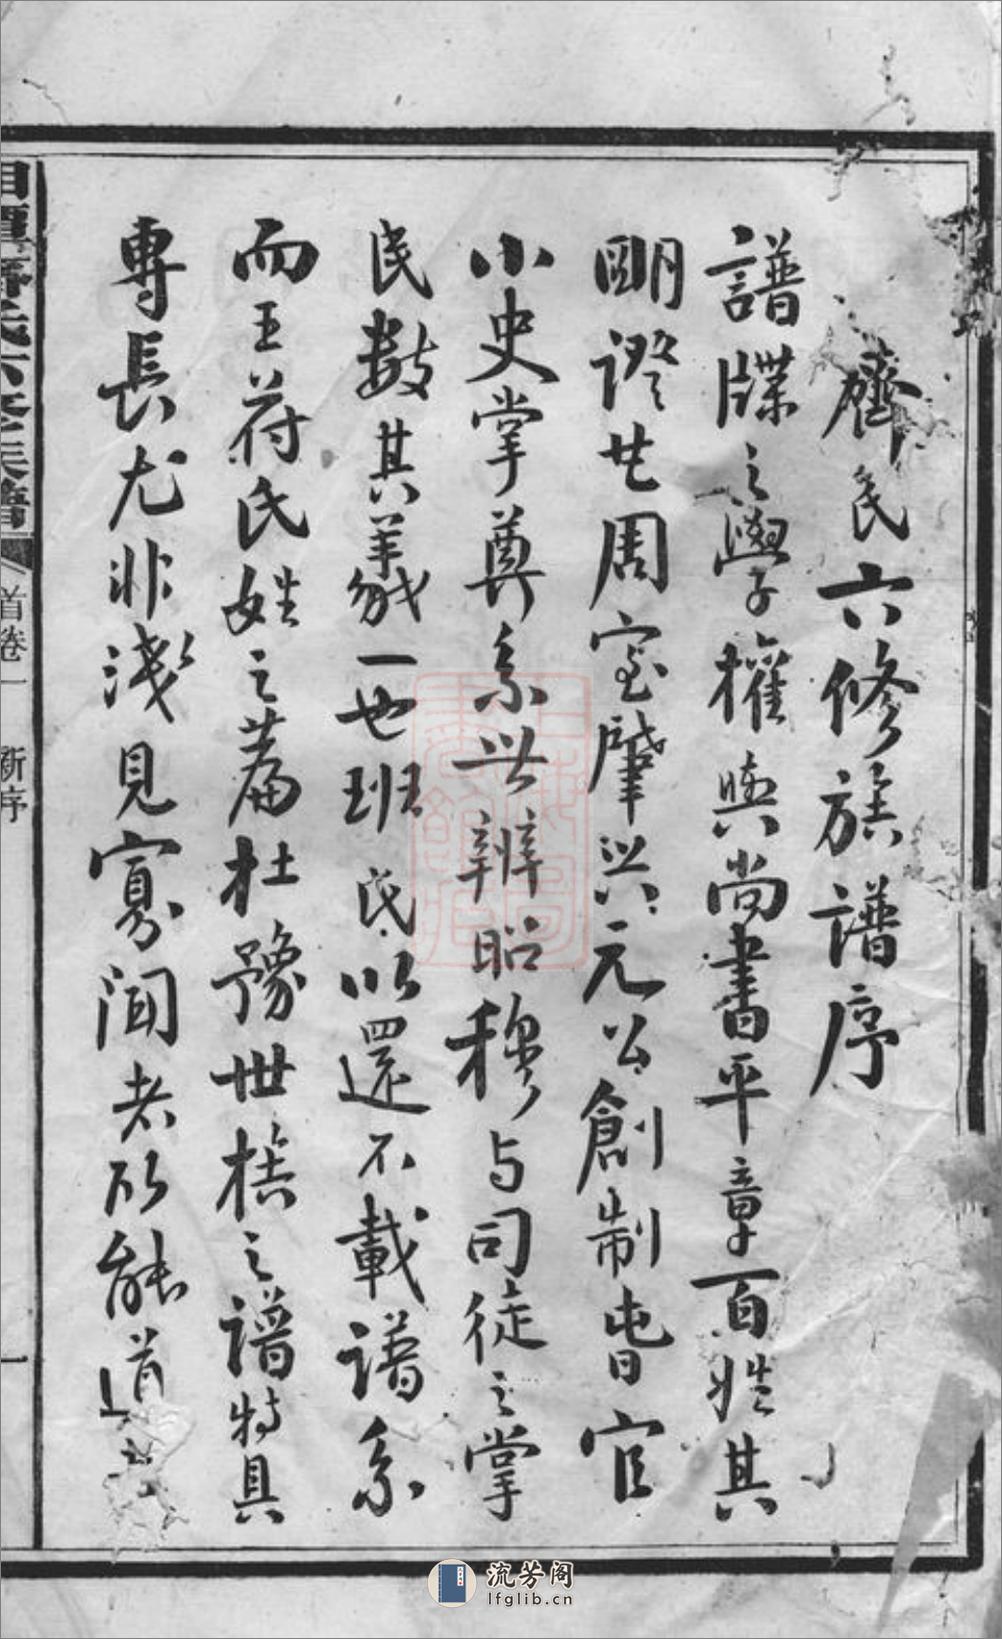 齊氏六修族譜序
譜牒之學權輿尚書平章百姓其
明證也周室肇興元公創制春官
小史掌奠系世辨昭穆与司徒之掌
民數其義一也班氏以還不載譜系
而王苻氏姓之篇杜豫世族之譜特具
專長尤非淺見寡聞者所能道
湘潭齊氏六修族譜
首卷一
新序
一
流芳阁
lfglib.cn